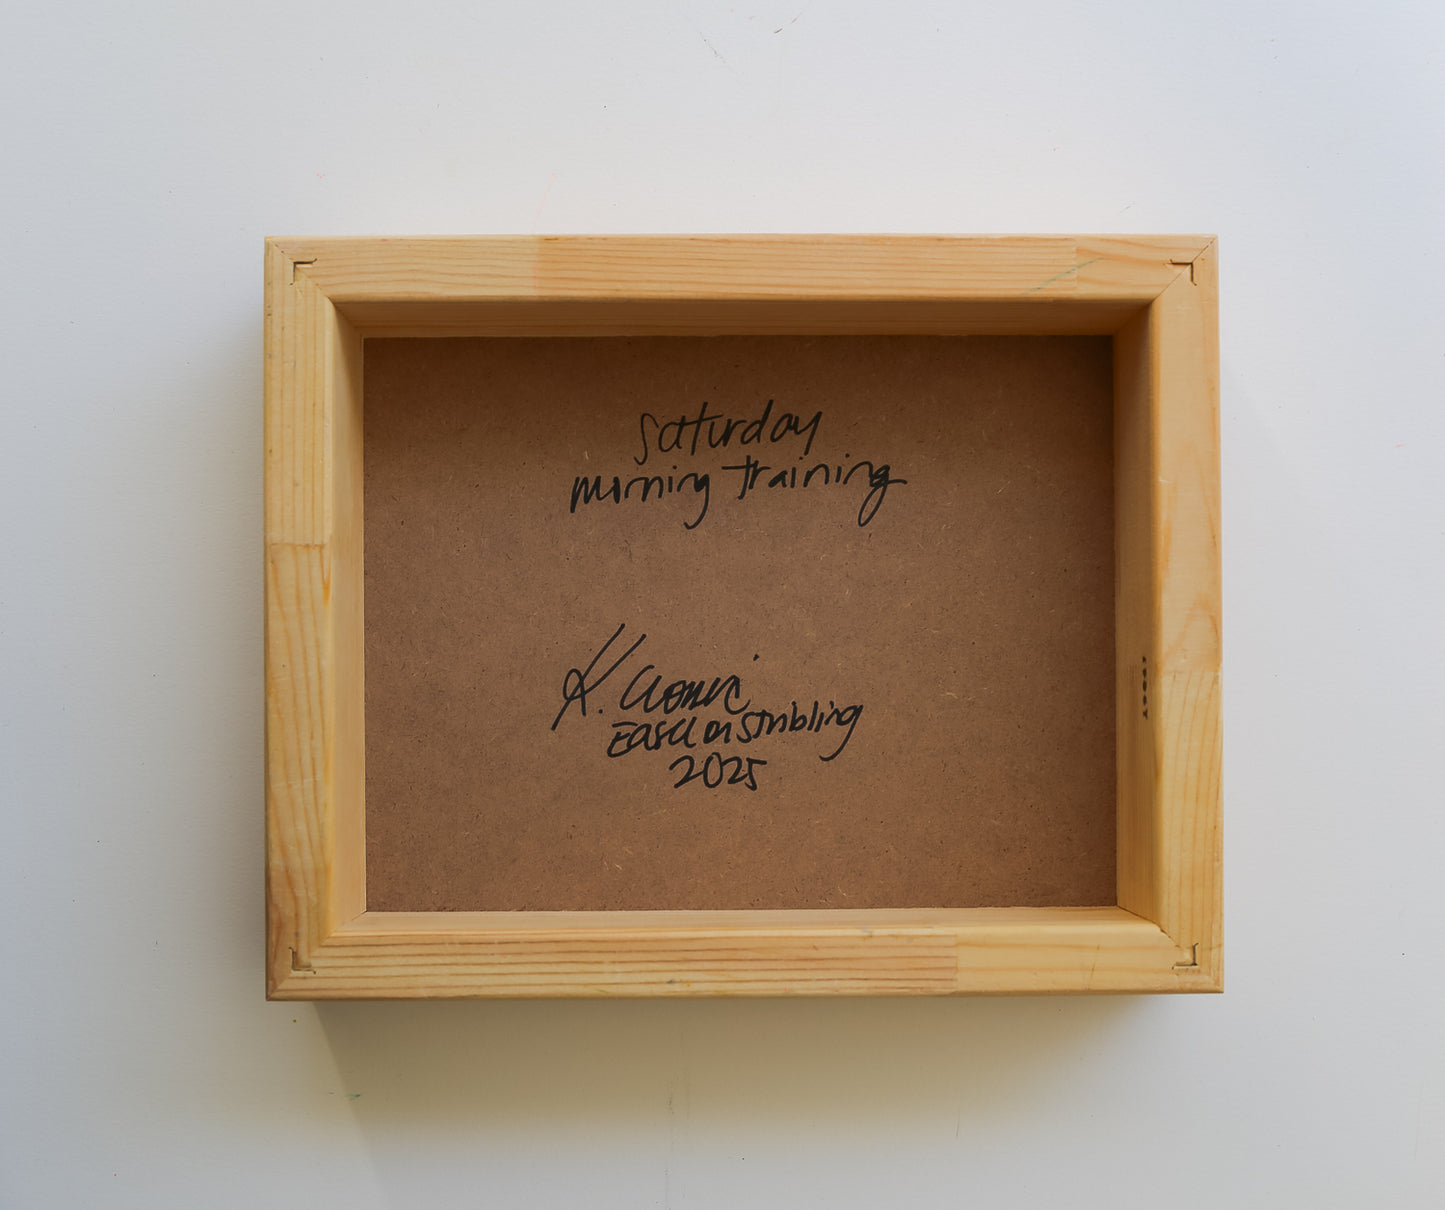 Saturday
morning training
K.
Easel on Stribling
2025